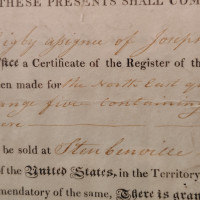 THESE PRESENTS SHALL COM
Rigby assignee of Joseph
ffice a Certificate of the Register of the
een made for the North East q
ange five containing
be sold at Steubenville
of the United States, in the Territory
mendatory of the same, There is grant